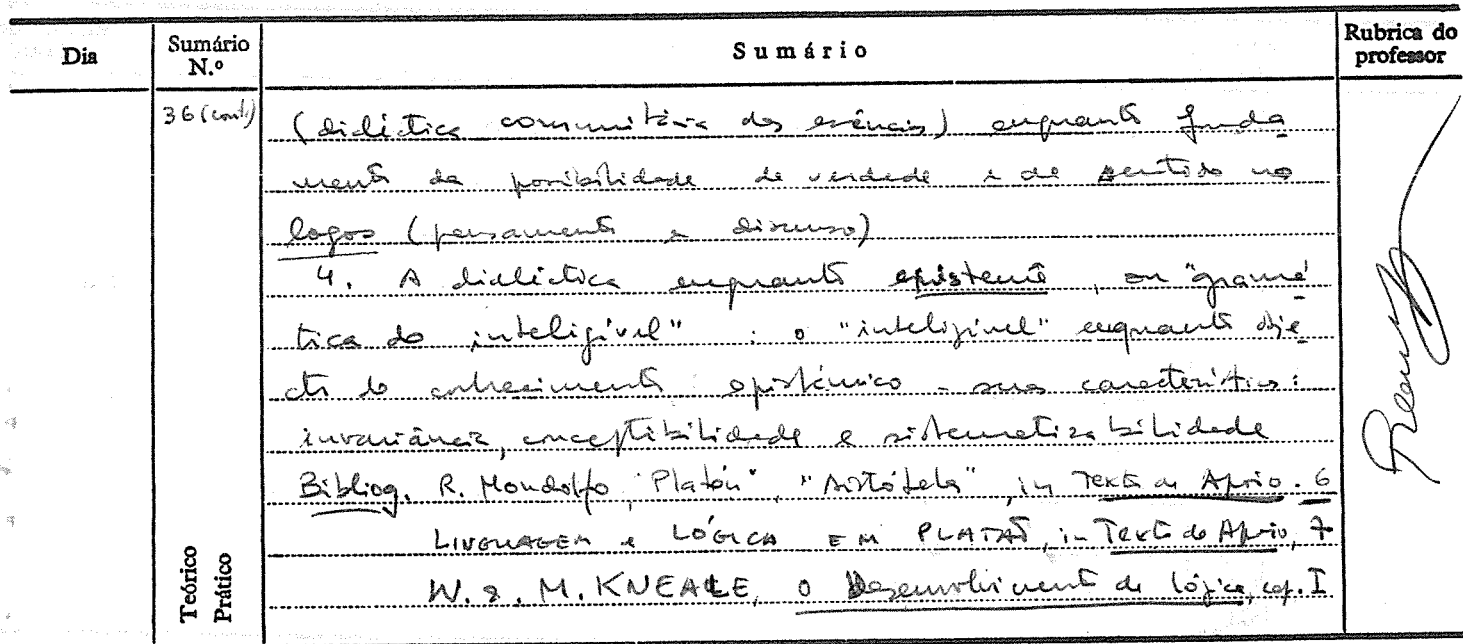 Dia
Sumário N.º
Sumário
Rubrica do professor
36 (cont.)
(dialéctica comunitária das essências) enquanto funda
mento da possibilidade de verdade e de sentido no
logos (pensamento e discurso)
4. A dialéctica enquanto epistemê, ou "gramá
tica do inteligível" : o "inteligível" enquanto obje
cto do conhecimento epistémico - suas características:
invariância, conceptibilidade e sistematizabilidade
Bibliog. R. Mondolfo, "Platón", "Aristóteles", in Texto de Apoio. 6
LINGUAGEM e LÓGICA EM PLATÃO, in Texto de Apoio, 7
W. e. M. KNEALE, O Desenvolvimento da lógica, cap. I
Teórico
Prático